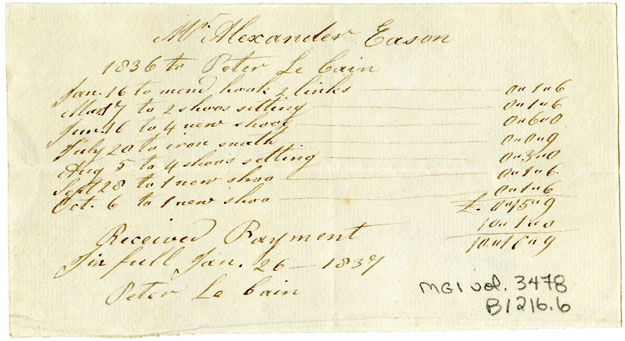 Mr. Alexander Eason
1836 to Peter Le Cain
Jan. 16 to mend hook 2 links 0"1"6
Mar 17 to 2 shoos setting 0"1"6
Jun 16 to 4 new shoos 0"6"0
July 20 to iron snath 0"0"9
Aug 5 to 4 shoos setting 0"3"0
Sept 28 to 1 new shoo 0"1"6
Oct. 6 to 1 new shoo 0"1"6
£. 0"15"9
10"1"0
10"16"9
Received Payment
In full Jan. 26 — 1837
Peter Le Cain
MG1 vol. 3478
B1216.6